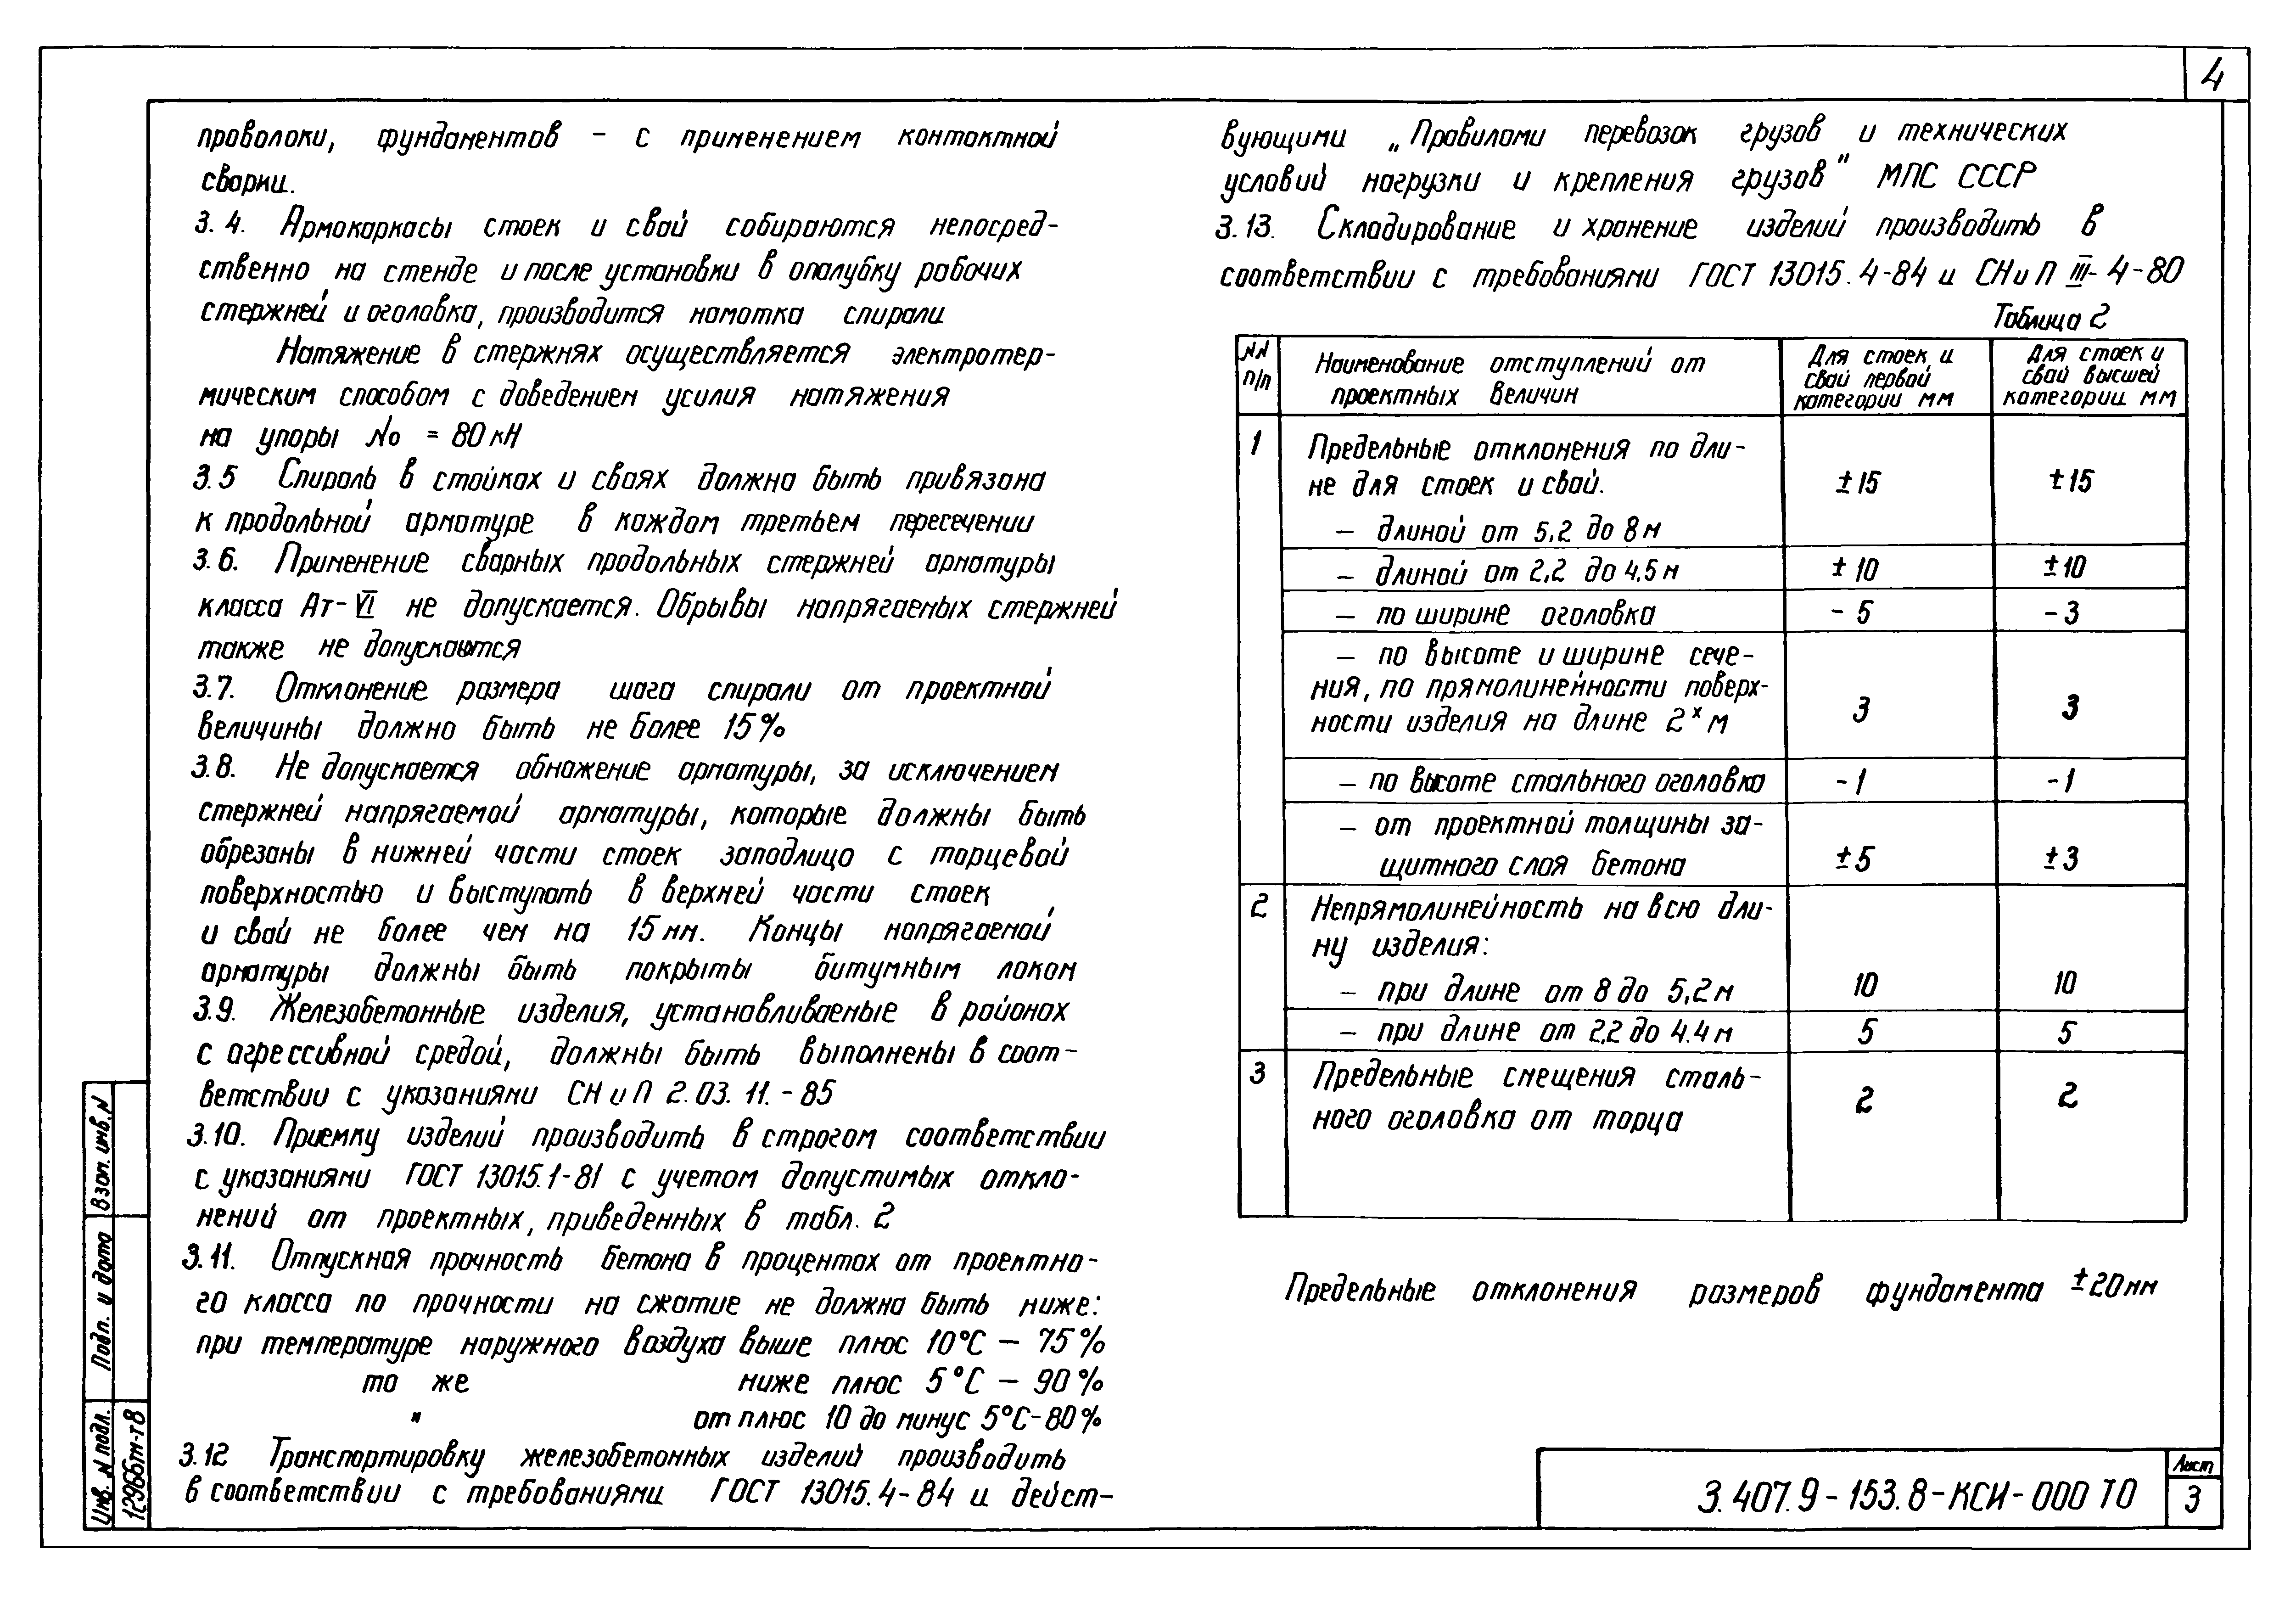 4
проволоки, фундаментов – с применением контактной
сварки.
3.4. Армокаркасы стоек и свай собираются непосред-
ственно на стенде и после установки в опалубку рабочих
стержней и оголовка, производится намотка спирали
Натяжение в стержнях осуществляется электротер-
мическим способом с доведением усилия натяжения
на упоры No = 80 кН
3.5 Спираль в стойках и сваях должна быть привязана
к продольной арматуре в каждом третьем пересечении
3.6. Применение сварных продольных стержней арматуры
класса Ат-VI не допускается. Обрывы напрягаемых стержней
также не допускаются
3.7. Отклонение размера шага спирали от проектной
величины должно быть не более 15%
3.8. Не допускается обнажение арматуры, за исключением
стержней напрягаемой арматуры, которые должны быть
обрезаны в нижней части стоек заподлицо с торцевой
поверхностью и выступать в верхней части стоек
и свай не более чем на 15 мм. Концы напрягаемой
арматуры должны быть покрыты битумным лаком
3.9. Железобетонные изделия, устанавливаемые в районах
с агрессивной средой, должны быть выполнены в соот-
ветствии с указаниями СНиП 2.03.11.-85
3.10. Приемку изделий производить в строгом соответствии
с указаниями ГОСТ 13015.1-81 с учетом допустимых откло-
нений от проектных, приведенных в табл. 2
3.11. Отпускная прочность бетона в процентах от проектно-
го класса по прочности на сжатие не должна быть ниже:
при температуре наружного воздуха выше плюс 10°С – 75%
то же ниже плюс 5°С – 90%
" от плюс 10 до минус 5°С-80%
3.12 Транспортировку железобетонных изделий производить
в соответствии с требованиями ГОСТ 13015.4-84 и дейст-
вующими „Правилами перевозок грузов и технических
условий нагрузки и крепления грузов" МПС СССР
3.13. Складирование и хранение изделий производить в
соответствии с требованиями ГОСТ 13015.4-84 и СНиП III-4-80
Таблица 2
NN п/п
Наименование отступлений от
проектных величин
Для стоек и
свай первой
категории мм
Для стоек и
свай высшей
категории мм
1 Предельные отклонения по дли-
не для стоек и свай. ±15 ±15
– длиной от 5,2 до 8 м
– длиной от 2,2 до 4,5 м ±10 ±10
– по ширине оголовка -5 -3
– по высоте и ширине сече-
ния, по прямолинейности поверх-
ности изделия на длине 2ˣ м 3 3
– по высоте стального оголовка -1 -1
– от проектной толщины за-
щитного слоя бетона ±5 ±3
2 Непрямолинейность на всю дли-
ну изделия:
– при длине от 8 до 5,2 м 10 10
– при длине от 2,2 до 4.4 м 5 5
3 Предельные смещения сталь-
ного оголовка от торца 2 2
Предельные отклонения размеров фундамента ±20 мм
Взам. инв. N
Подп. и дата
Инв. N подл.
12966тм-т8
3.407.9-153.8-КСИ-000 ТО
Лист
3